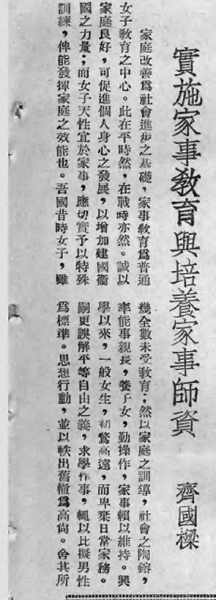 實施家事教育與培養家事師資
齊國樑
家庭改善爲社會進步之基礎,家事教育爲普通
女子教育之中心。此在平時然,在戰時亦然。誠以
家庭良好,可促進個人身心之發展,以增加建國衞
國之力量;而女子天性宜於家事,應切實予以特殊
訓練,俾能發揮家庭之效能也。吾國昔時女子,雖
幾全數未受教育;然以家庭之訓導,社會之陶鎔,
率能事親長,養子女,勤操作,家事賴以維持。興
學以來,一般女生,初騖高遠,而卑棄日常家務。
嗣更誤解平等自由之義,求學作事,輒以比擬男性
爲標準。思想行動,並以軼出舊轍爲高尚。舍其所